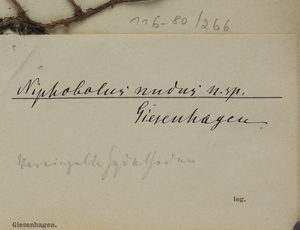 116-80/266
Niphobolus nudus n.sp.
Giesenhagen.
Vereinzelte Hydathoden
leg.
Giesenhagen.